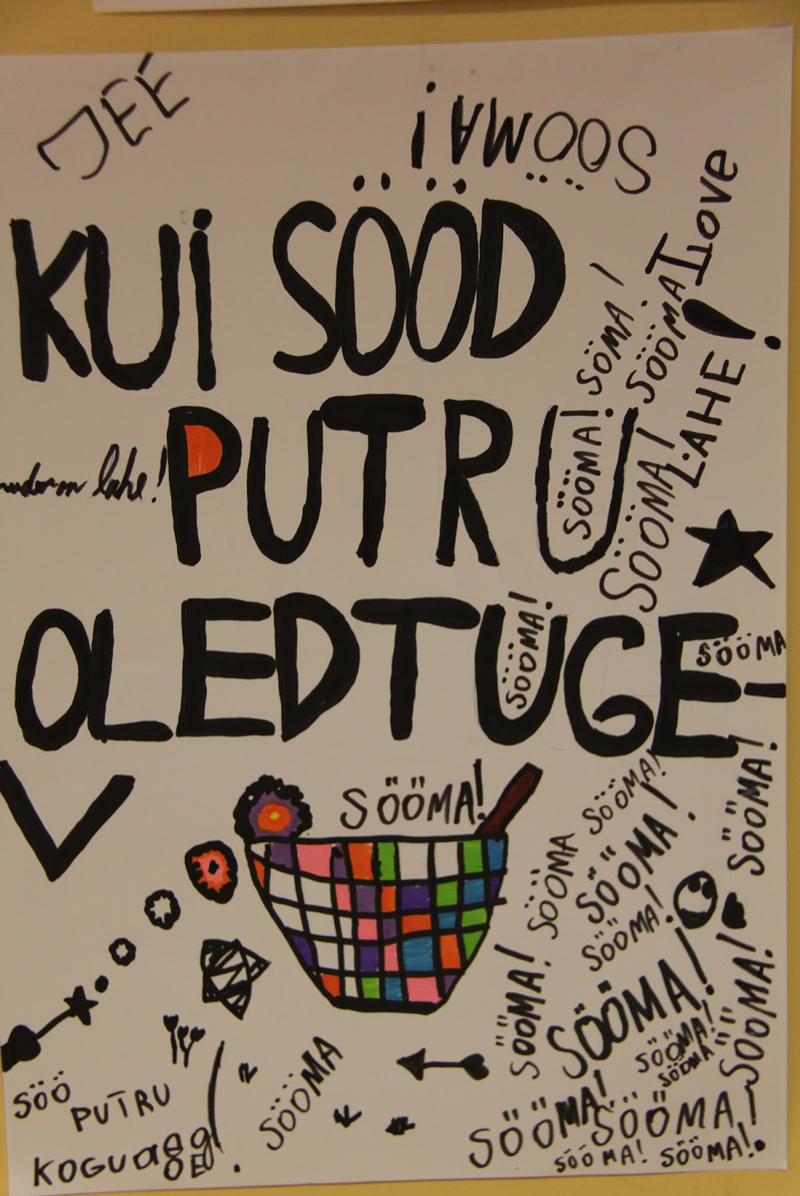 JEE
SÖÖMA!
KUI SÖÖD
I love
SÖMA!
SÖÖMA!
LAHE!
PUTRU
SÖÖMA!
SÖÖMA!
lahe!
OLED TUGE-
SÖÖMA!
SÖÖMA
V
SÖÖMA!
SÖÖMA!
SÖÖMA!
SÖÖMA!
SÖÖMA
SÖÖMA!
SÖÖMA!
SÖÖMA!
SÖÖMA!
SÖÖMA!
SÖÖMA
SÖÖMA
SÖÖ
PUTRU
KOGU aeg!
SÖÖMA!
SÖÖMA!
SÖÖMA!
SÖÖMA!